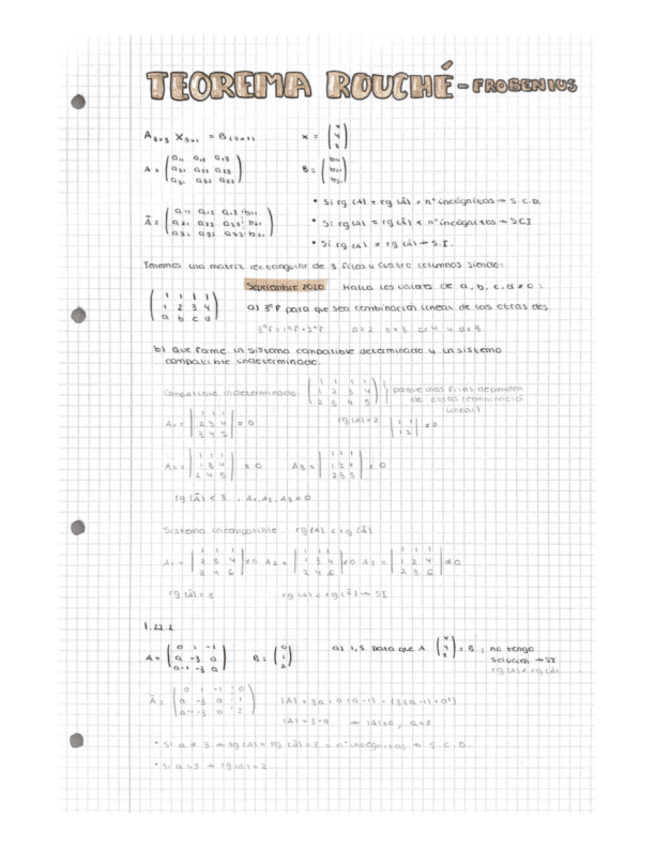 TEOREMA ROUCHÉ - FROBENIUS
A₃ₓ₃ X₃ₓ₁ = B(3x1) x = (x y z)
A = (a₁₁ a₁₂ a₁₃ a₂₁ a₂₂ a₂₃ a₃₁ a₃₂ a₃₃) B =
Ā =
• Si rg (A) = rg (Ā) = nº incógnitas → S.C.D.
• Si rg (A) = rg (Ā) < nº incógnitas → SCI
• Si rg (A) ≠ rg (Ā) → S.I.
Tenemos una matriz rectangular de 3 filas y cuatro columnas siendo:
Septiembre 2020 Halla los valores de a, b, c, d ≠ 0:
(1 1 1 1
1 2 3 4
a b c d)
a) 3ªF para que sea combinación lineal de las otras dos
3ªF = 1ªF + 2ªF a=2 b=3 c=4 y d=5
b) que forme un sistema compatible determinado y un sistema
compatible indeterminado.
Compatible indeterminado
(1 1 1 1
1 2 3 4
2 3 4 5)
porque unas filas dependen
de otras (combinació
lineal)
rg (A) = 2 |1 1 1 2| ≠ 0
A₁ = |1 1 1 2 3 4 3 4 5| = 0
A₂ = |1 1 1 1 3 4 2 4 5| = 0 A₃ = |1 1 1 1 2 4 2 3 5| = 0
rg (Ā) < 3 , A₁, A₂, A₃ = 0
Sistema incompatible rg (A) < rg (Ā)
A₁ = ≠ 0 A₂ = |1 1 1 1 3 4 2 4 6| ≠ 0 A₃ = |1 1 1 1 2 4 2 3 6| ≠ 0
rg (Ā) = 3 rg (A) < rg (Ā) → SI
1.22.2
A = (0 1 -1 a -3 a a-1 -3 a) B = (0 1 2)
a) 1,5 para que A (x y z) = B ; no tenga
solución → SI
rg (A) ≠ rg (Ā)
Ā = (0 1 -1 0 a -3 a 1 a-1 -3 a 2)
|A| = 3-a → |A|=0, a=3
• Si a ≠ 3 → rg (A) = rg (Ā) = 3 = nº incógnitas → S.C.D.
• Si a=3 → rg (A) = 2